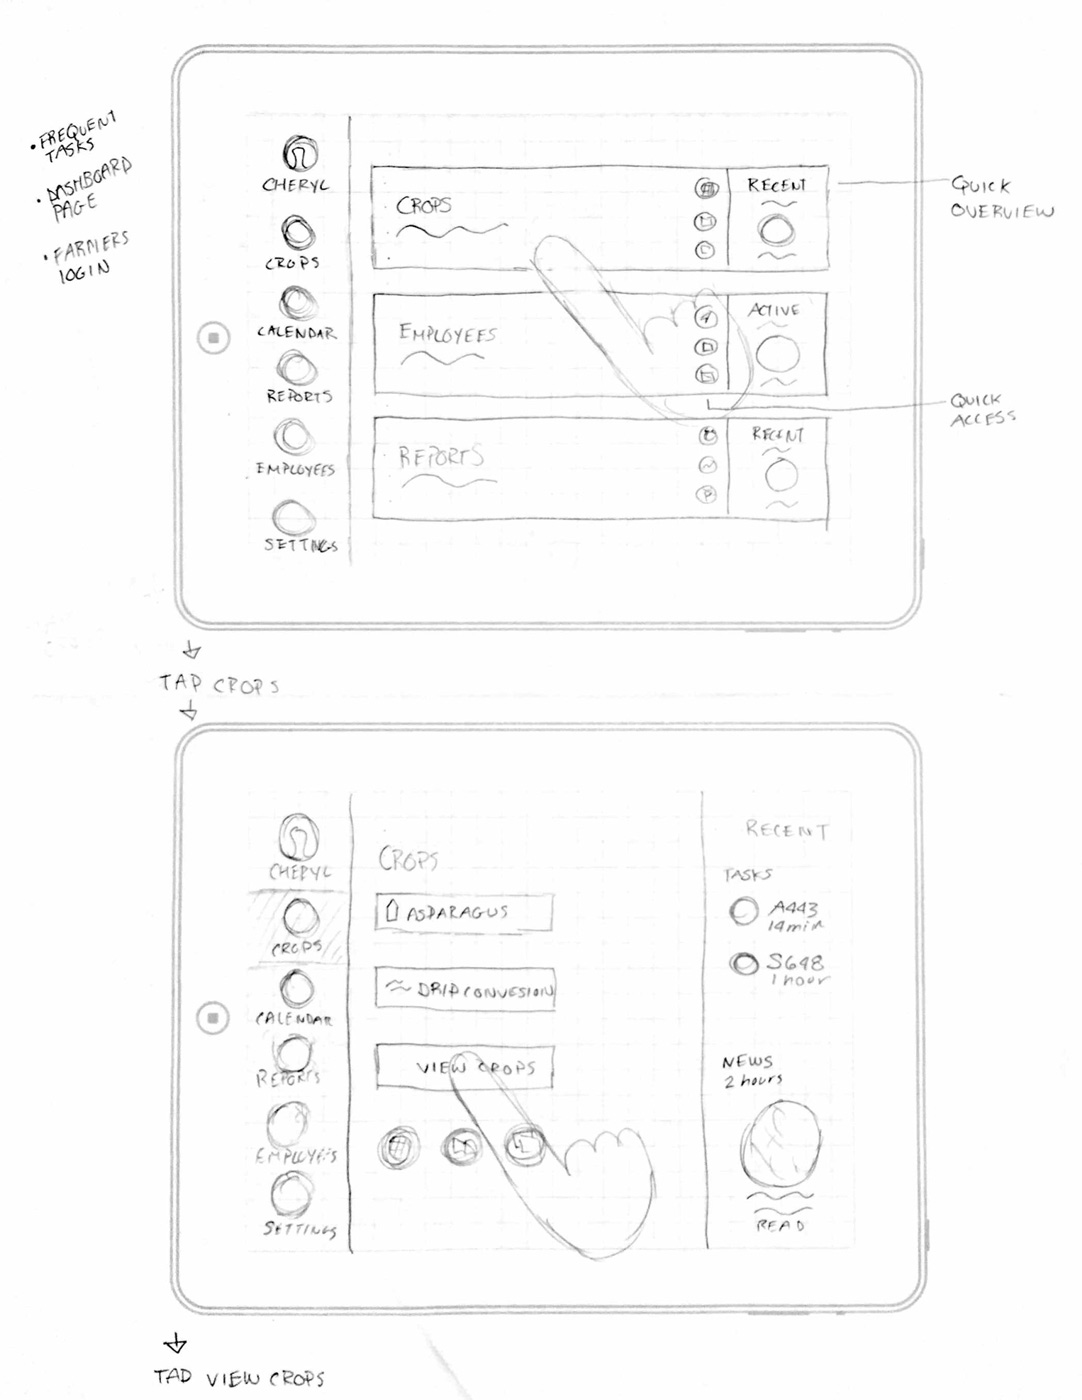 • FREQUENT
TASKS
• DASHBOARD
PAGE
• FARMERS
LOGIN
CHERYL
CROPS
CALENDAR
REPORTS
EMPLOYEES
SETTINGS
CROPS
RECENT
EMPLOYEES
ACTIVE
REPORTS
RECENT
QUICK
OVERVIEW
QUICK
ACCESS
TAP CROPS
CHERYL
CROPS
CALENDAR
REPORTS
EMPLOYEES
SETTINGS
CROPS
ASPARAGUS
DRIP CONVESION
VIEW CROPS
RECENT
TASKS
A443
14min
S648
1 hour
NEWS
2 hours
READ
TAP VIEW CROPS